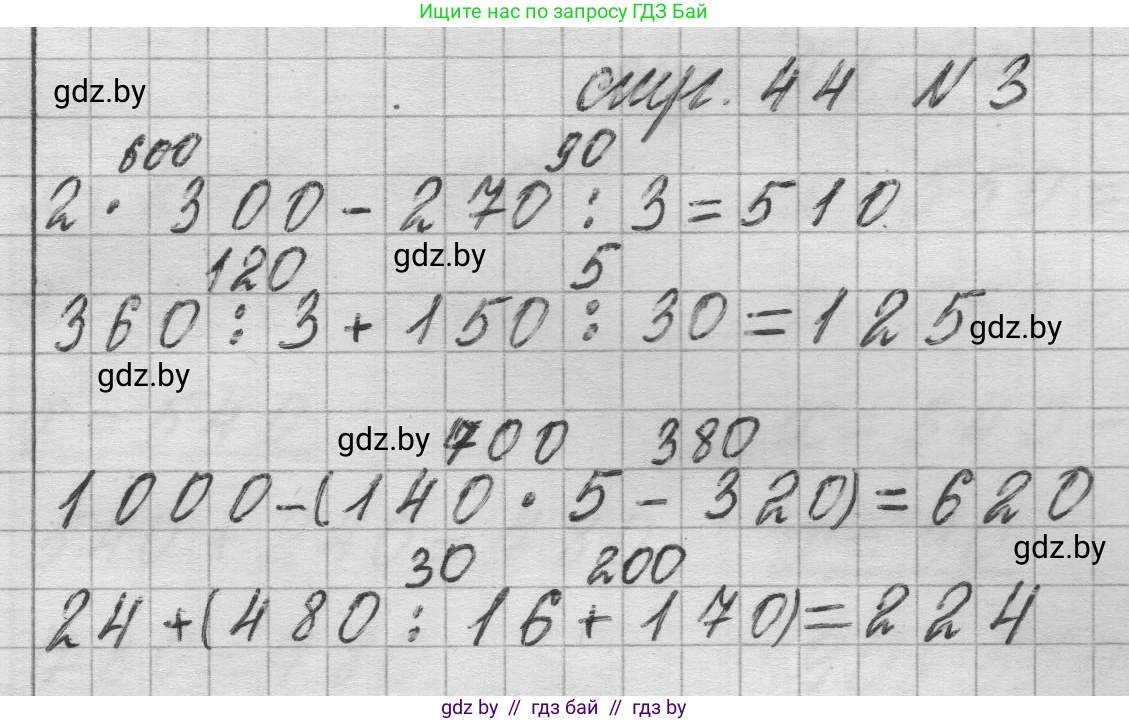 Ищите нас по запросу ГДЗ Бай
gdz.by
стр. 44 N 3
600 90
2 · 300 - 270 : 3 = 510
gdz.by
120 5
360 : 3 + 150 : 30 = 125
gdz.by
gdz.by
gdz.by
700 380
1000 - (140 · 5 - 320) = 620
gdz.by
30 200
24 + (480 : 16 + 170) = 224
gdz by // гдз бай // gdz by